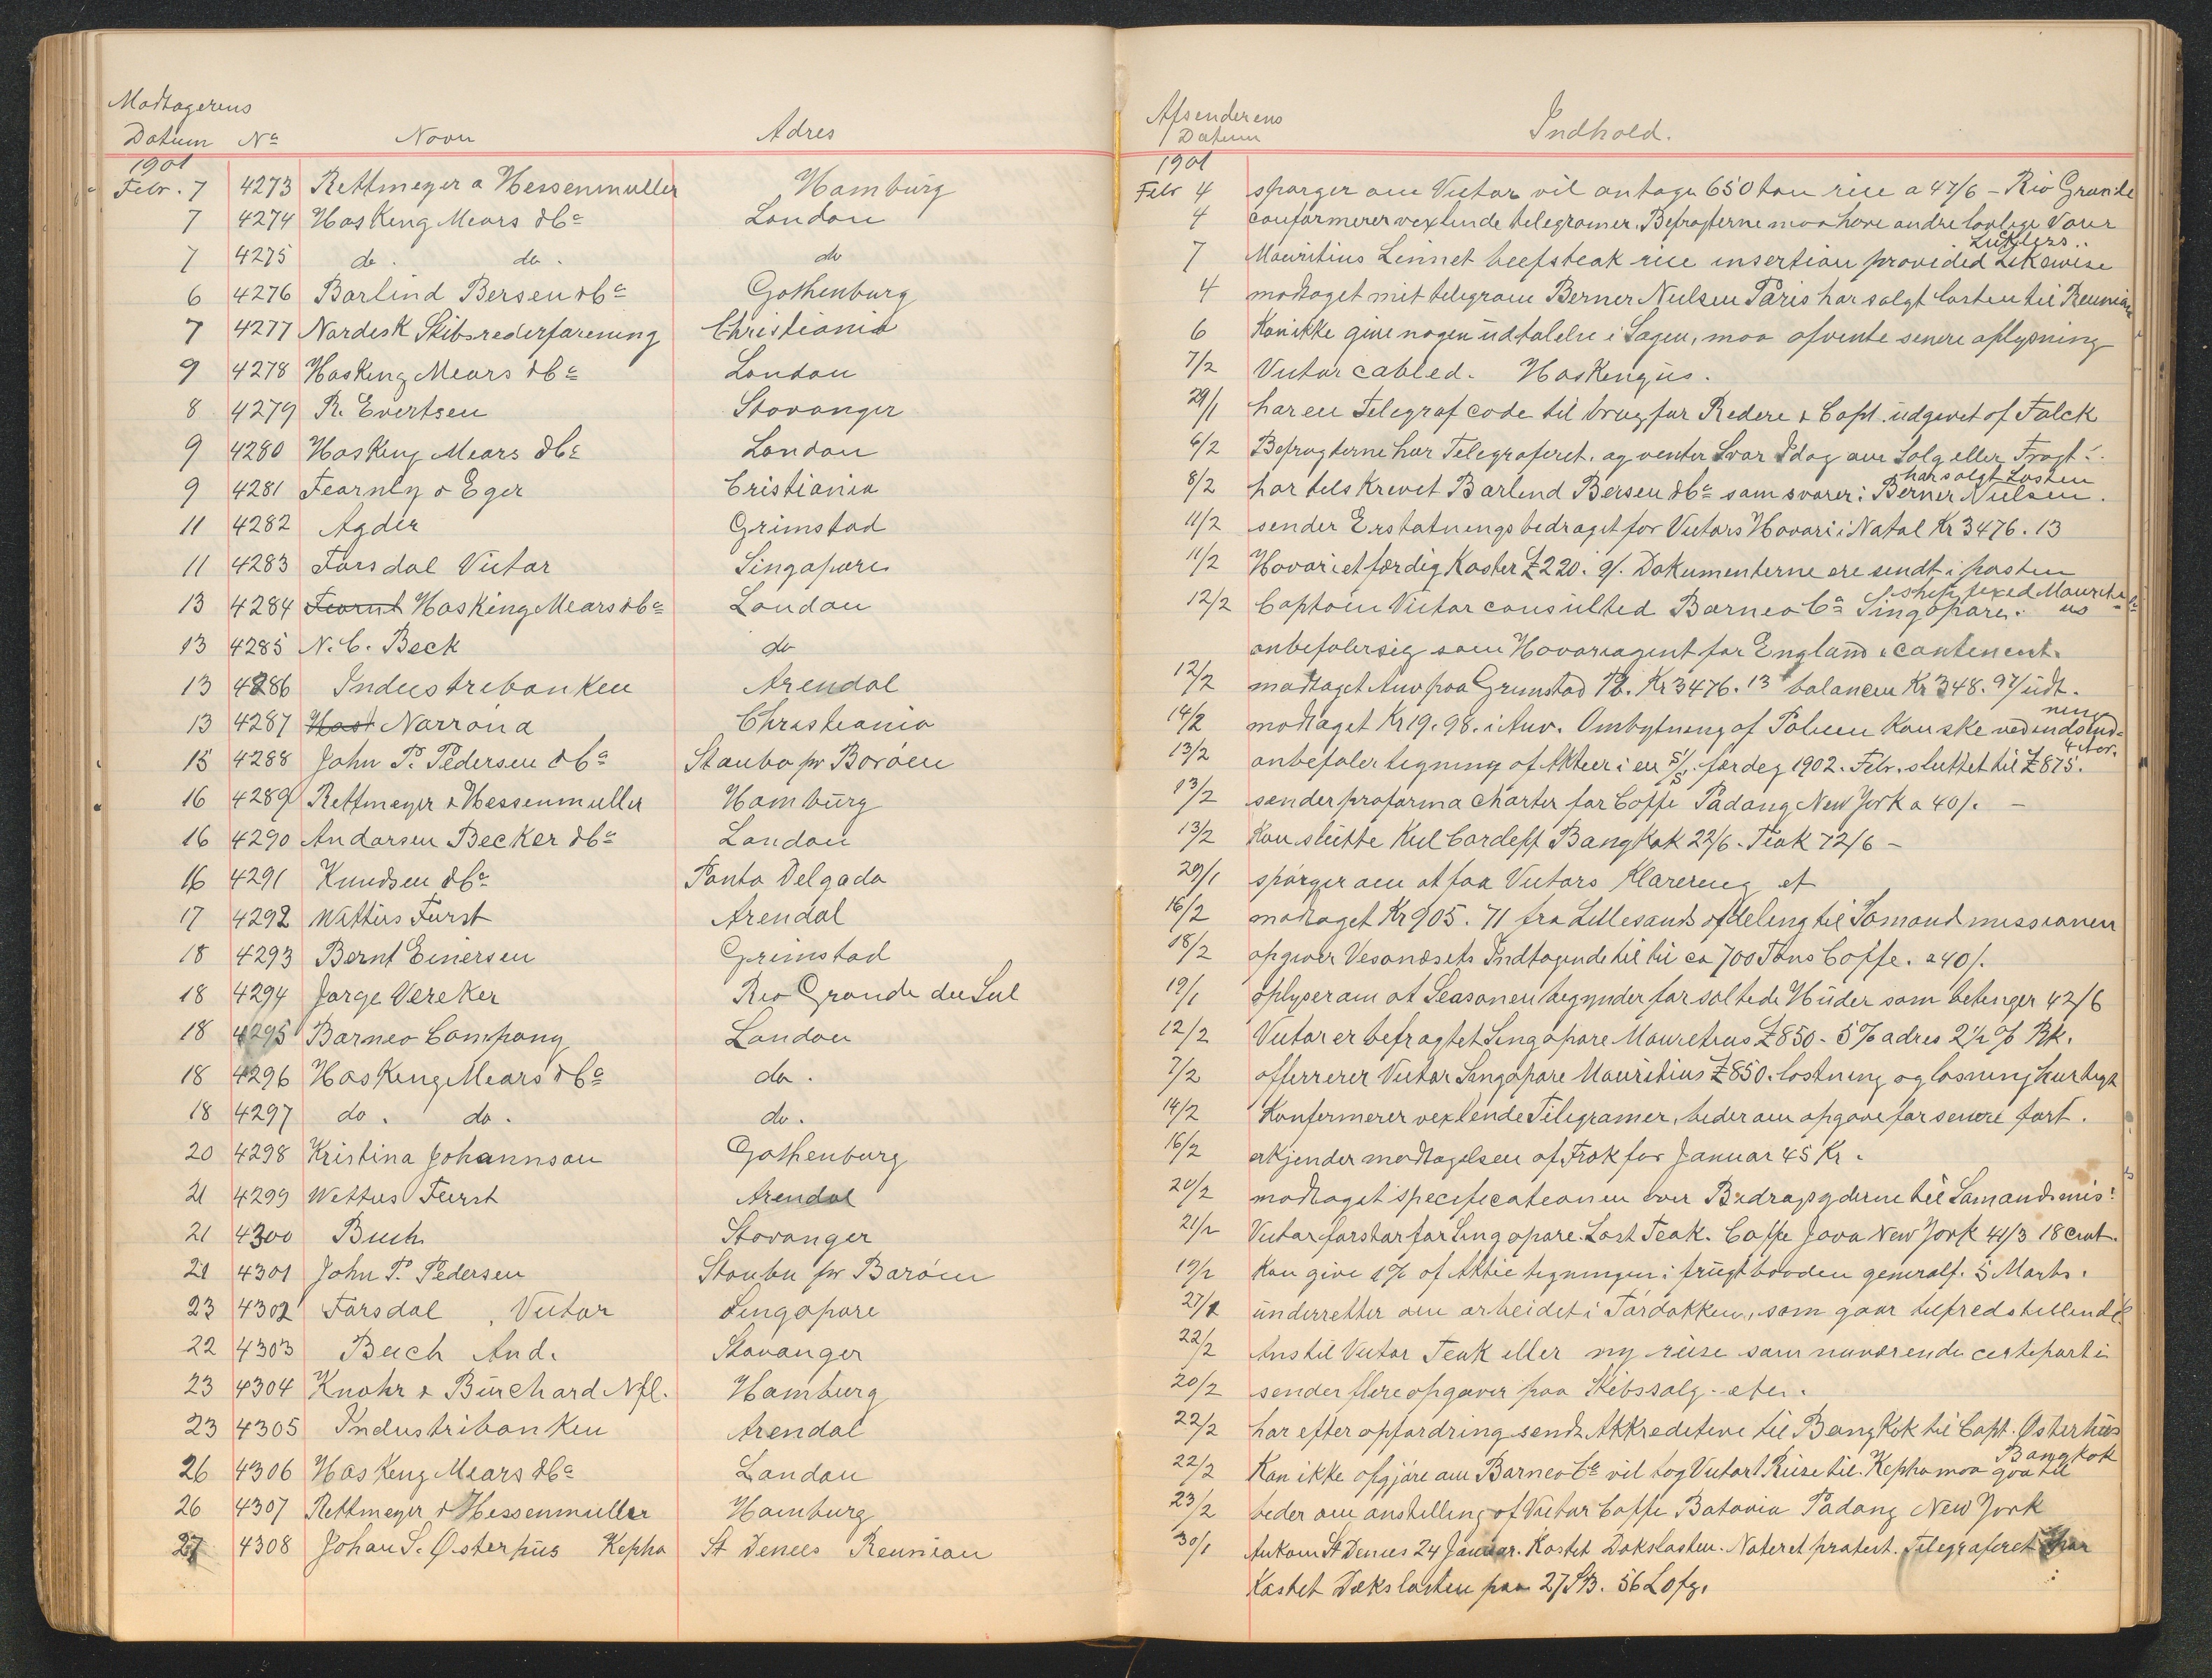 Modtagerens
Datum No Navn Adres
Afsenderens
Datum Indhold.
1901
1901
Febr. 7 4273 Rettmeyer & Hessenmuller Hamburg Febr 4 spörger om Victor vil antage 650 ton rice a 47/6 - Rio Grande
7 4274 Hosking Mears & Co London 4 conformerer vexlende telegramer. Befragterne maa have andre lovlige Varer
7 4275 do. do. do 7 Mauritius Linnet beefsteak rice insertion provided Likewise
6 4276 Barlind Bersen & Co Gothenburg 4 modtaget mit telegram Berner Nielsen Paris har solgt lasten til Reunion
7 4277 Nordisk Skibsrederforening Christiania 6 Kan ikke give nogen udtalelse i Sagen, maa afvente senere oplysning
9 4278 Hosking Mears & Co London 7/2 Victor cabled. Hoskengus.
8 4279 R. Evertsen Stavanger 29/1 har en Telegraf code til brug for Redere & Capt. udgivet af Falck
9 4280 Hosking Mears & Co London 6/2 Befragterne har Telegraferet. og venter Svar Idag om Salg eller Fragt.
9 4281 Fearnly & Eger Cristiania 8/2 har telskrevet Barlind Bersen & Co som svarer: Berner Nielsen har solgt Lasten.
11 4282 Agder Grimstad 11/2 sender Erstatningsbedraget for Victors Havari i Natal Kr 3476.13
11 4283 Farsdal Victor Singapore 11/2 Havariet færdig Koster £220. 9/. Dokumenterne ere sendt i posten
13 4284 Hosking Mears & Co London 12/2 Captain Victor consulted Borneo Co Singapore. ship fixed Mauritius
13 4285 N. C. Beck do anbefaler sig som Havariagent for England & continent.
13 4286 Industribanken Arendal 12/2 modtaget Anv paa Grimstad Pb. Kr 3476.13 balancen Kr 348.97 udt.
13 4287 Norröna Christiania 14/2 modtaget Kr 19.98. i Anv. Ombytning af Polisen kan ske ved indsendning
15 4288 John P. Pedersen & Co Staubo pr Boröen 13/2 anbefaler tegning af Aktier i en S/S. færdig 1902. Febr. sluttet til £875. 4 Mdr.
16 4289 Rettmeyer & Hessenmuller Hamburg 13/2 sender proforma Charter for Coffe Padang New York a 40/. -
16 4290 Andorsen Becker & Co London 13/2 Kan slutte Kul Cardeff Bangkok 22/6. Teak 72/6 -
16 4291 Knudsen & Co Ponta Delgada 29/1 spörger om at faa Victors Klarering et
17 4292 Wattus Furst Arendal 16/2 modtaget Kr 905.71 fra Lillesands afdeling til Sömandmissionen
18 4293 Bernt Einersen Grimstad 18/2 opgiver Vesanæsets Indtagende til til ca 700 Tons Coffe. a 40/.
18 4294 Jorge Vereker Rio Grande du Sul 19/1 oplyser om at Seasonen begynder for saltede Huder som betinger 42/6
18 4295 Borneo Company London 12/2 Victor er befragtet Singapore Mauretius £850 - 5% adres 2½% Bk.
18 4296 Hosking Mears & Co do. 7/2 offerrerer Victor Singapore Mauritius £850. lastning og losning hurtigt
18 4297 do. do. do. 14/2 Konfermerer vexlende Telegramer, beder om opgave for senere fart.
20 4298 Kristina Johannson Gothenburg 16/2 erkjender modtagelsen af Træk for Januar 45 Kr.
21 4299 Wettus Furst Arendal 20/2 modtaget specificationen over Bidragsyderne til Sömandsmis:
21 4300 Buch Stavanger 21/2 Victor forstar for Singapore. Last Teak. Coffe Java New York 41/3 18 cwt.
21 4301 John P. Pedersen Staubo pr Boröen 19/2 Kan give 1% af Aktie tegningen i frugtbaaden generalf. 5 Marts.
23 4302 Farsdal, Victor Singapore 27/1 underretter om arbeidet i Tördokken, som gaar tilfredstillende
22 4303 Buch And. Stavanger 22/2 Anstil Victor Teak eller ny reise som nuværende certeparti
23 4304 Knohr & Burchard Nfl. Hamburg 20/2 sender flere opgaver paa Skibssalg - etc.
23 4305 Industribanken Arendal 22/2 har efter opfordring sendt Akkreditive til Bangkok til Capt. Østerhus
26 4306 Hosking Mears & Co London 22/2 Kan ikke afgjöre om Borneo Co vil tog Victor 1 Reise til. Kepha maa gaa til Bangkok
26 4307 Rettmeyer & Hessenmuller Hamburg 23/2 beder om anstilling af Victor Coffe Batavia Padang New York
27 4308 Johan S. Østerhus Kepha St Denees Reunion 30/1 Ankom St Denees 24 Januar. Kastet Dækslasten. Noteret protest. Telegraferet har
Kastet Dækslasten paa 27 SB. 56 Lofg.